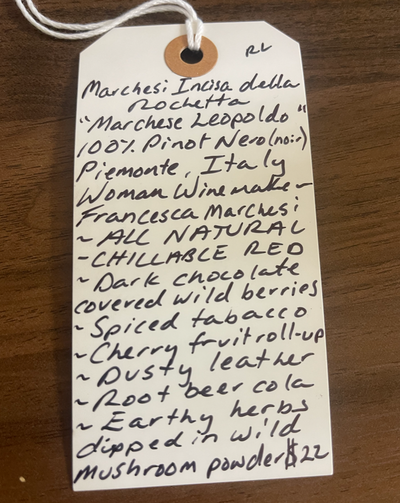 RL
Marchesi Incisa della
Rochetta
"Marchese Leopoldo"
100% Pinot Nero (noir)
Piemonte, Italy
Woman Winemaker
Francesca Marchesi
~ ALL NATURAL
- CHILLABLE RED
~ Dark chocolate
covered wild berries
~ Spiced tabacco
~ Cherry fruit roll-up
~ Dusty leather
~ Root beer cola
~ Earthy herbs
dipped in wild
mushroom powder $22